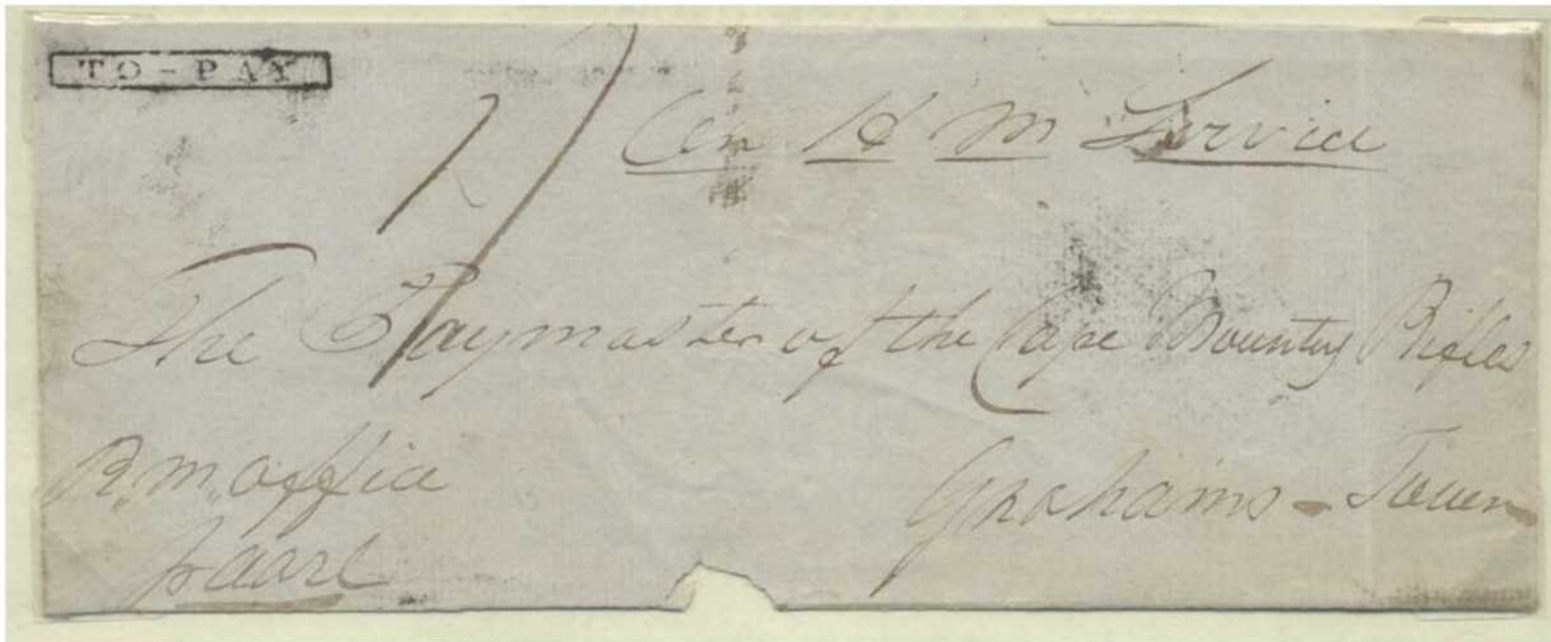 TO-PAY
On H M Service
The Paymaster of the Cape Mounty Rifles
Grahams-Town
R.M. Office
Paarl